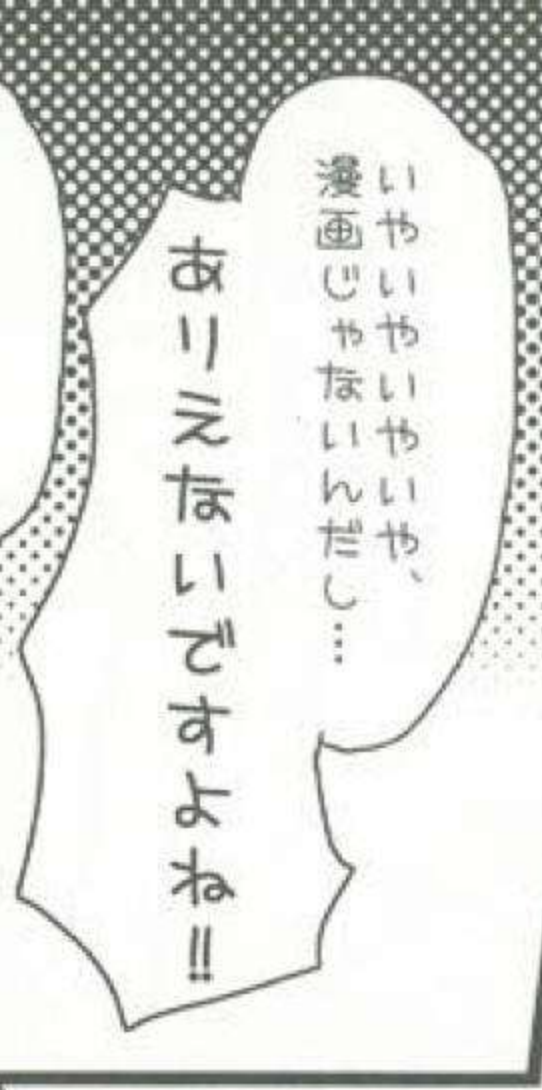 いやいやいやいや、
漫画じゃないんだし…
ありえないですよね!!